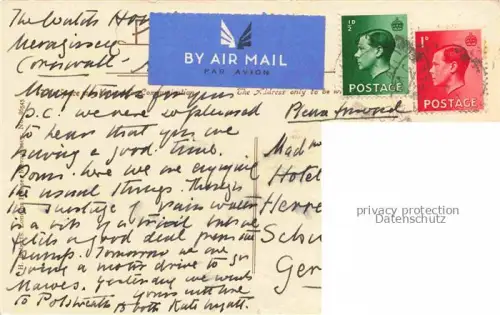 The Watch House
Mevagissey
Cornwall
BY AIR MAIL
PAR AVION
½D
POSTAGE
1D
POSTAGE
The Address only to be
Many thanks for your
p.c. we were so pleased
to hear that you are
having a good time.
here we are enjoying
the usual things. Though
the shortage of rain water
is a bit of a trial &
a good deal from the
pump. Tomorrow we are
going a motor drive to St
Mawes. Yesterday we went
to Polstreath. Yours with love
to both Kate
Please forward
Mad
Hotel
Herre
Schu
Ger
privacy protection
Datenschutz